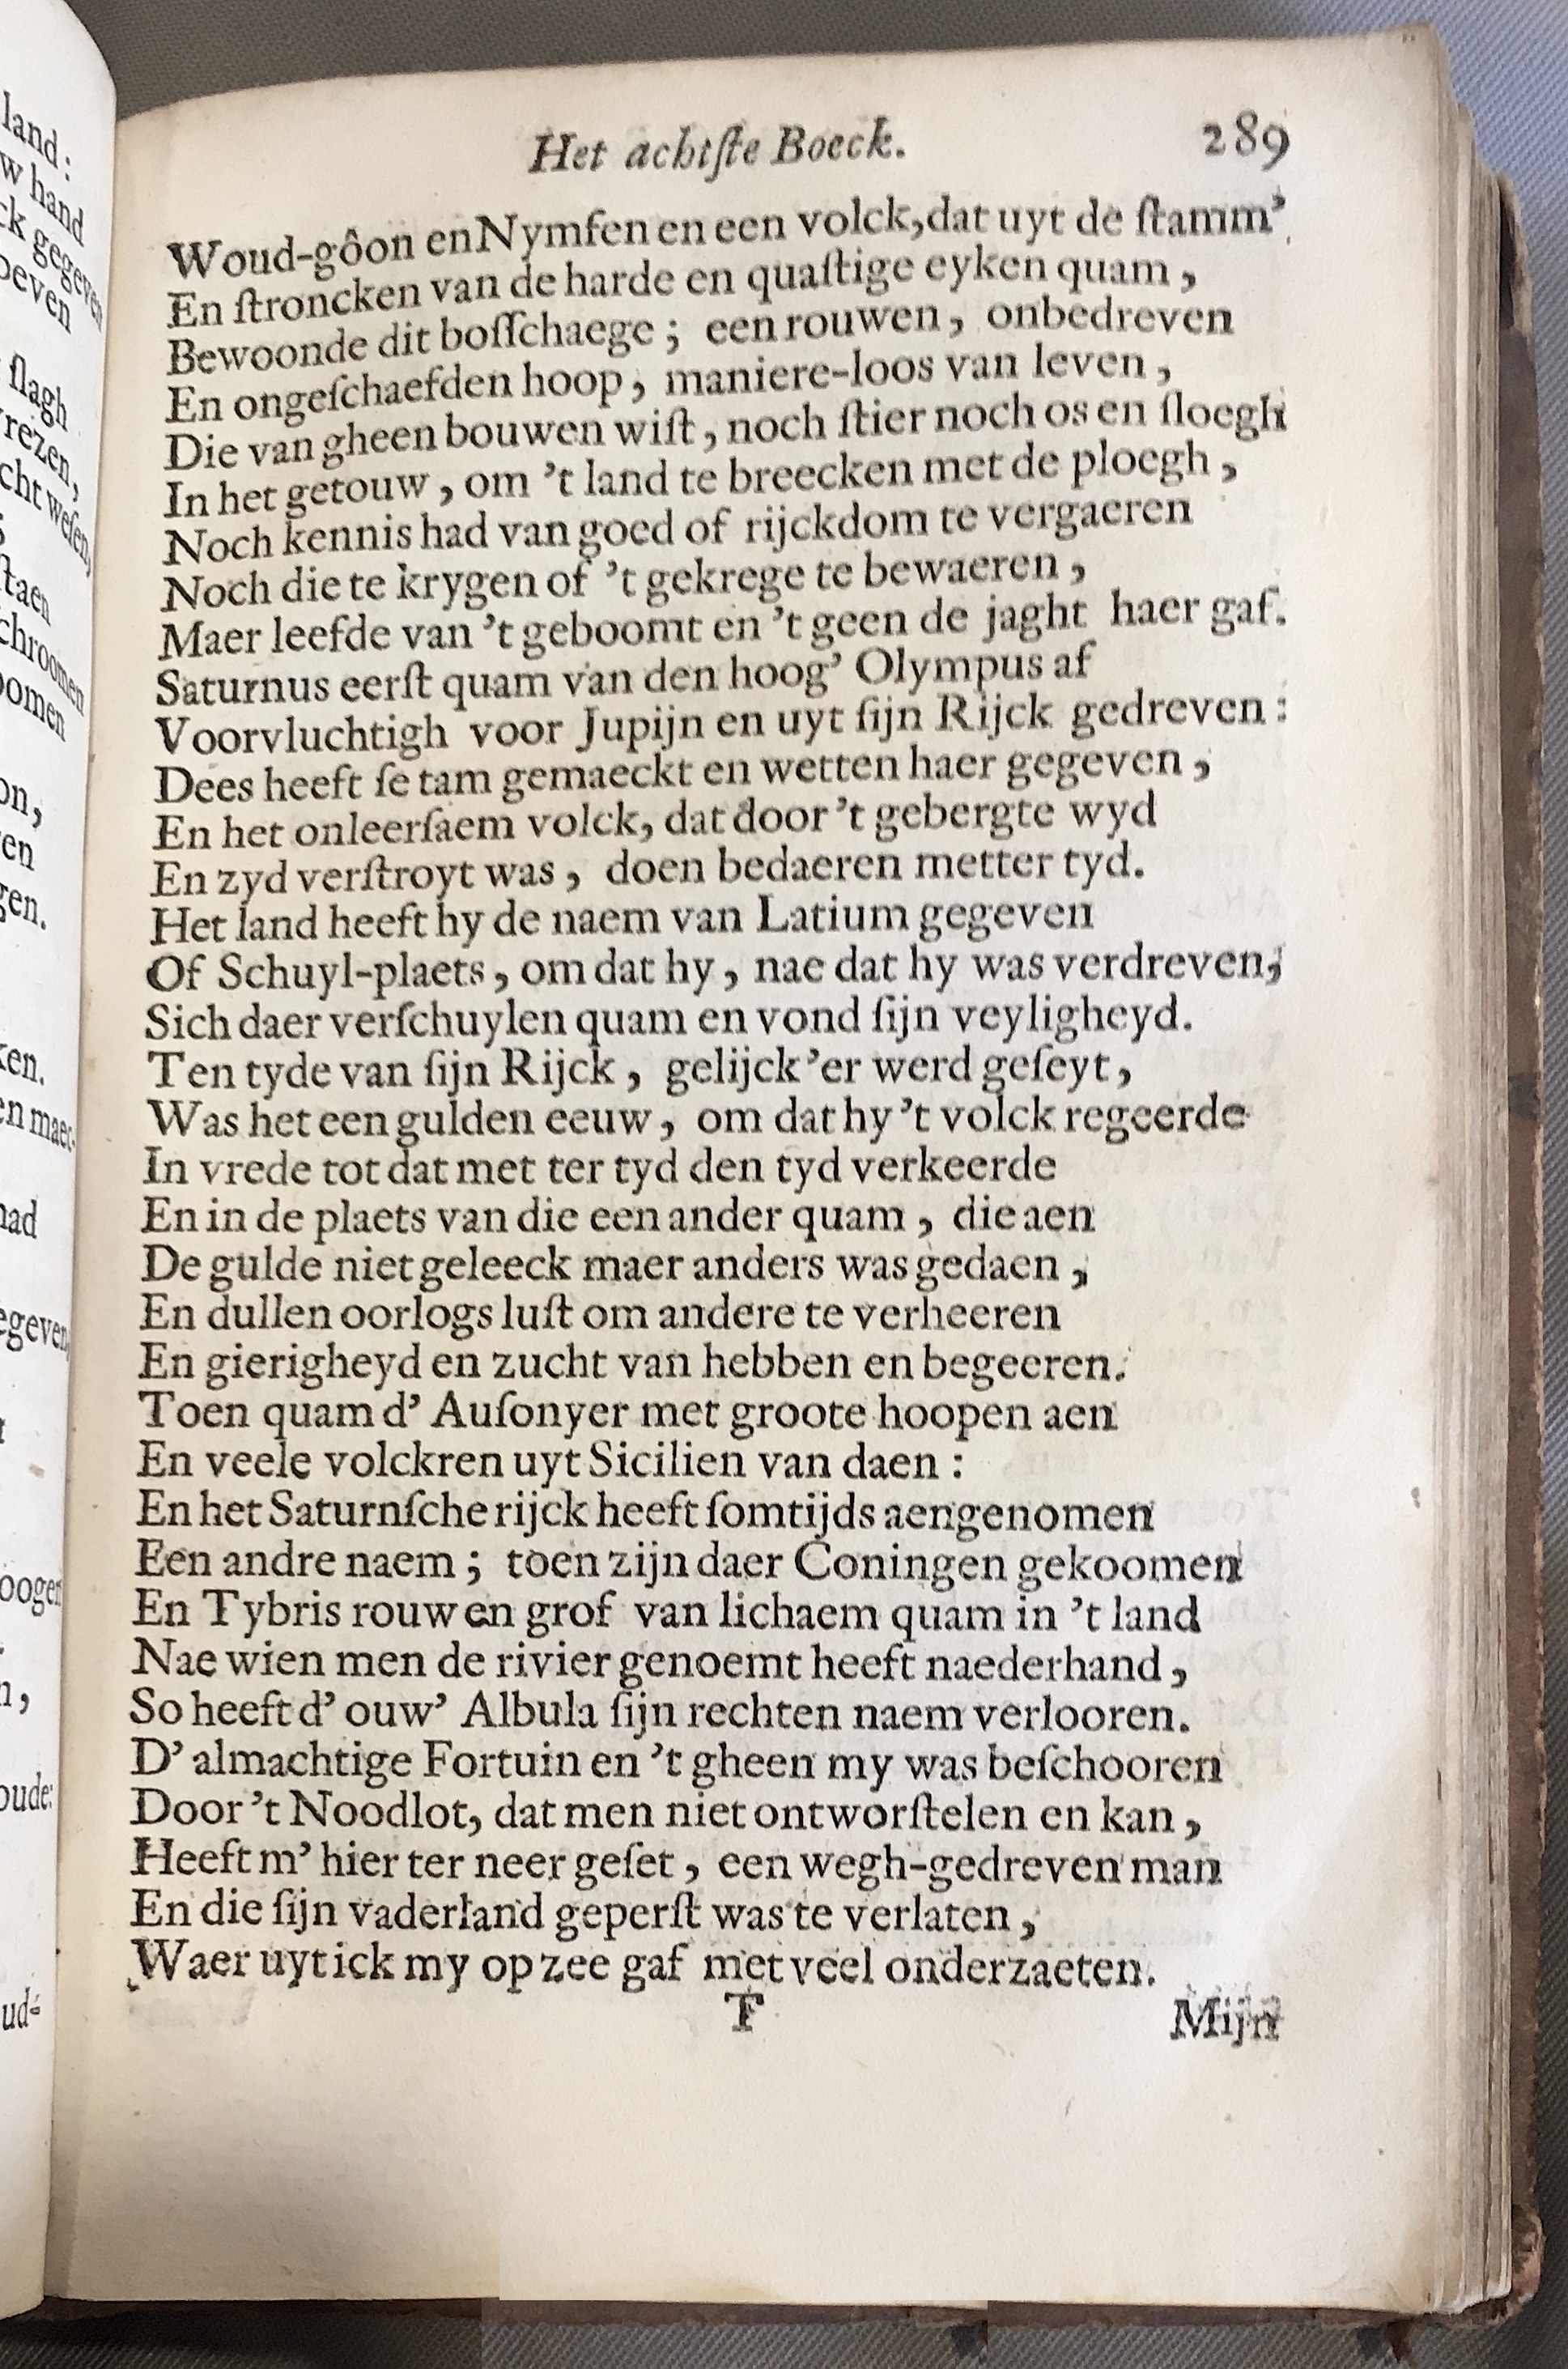 Het achtſte Boeck. 289
Woud-gôon en Nymfen en een volck, dat uyt de ſtamm'
En ſtroncken van de harde en quaſtige eyken quam,
Bewoonde dit boſſchaege; een rouwen, onbedreven
En ongeſchaefden hoop, maniere-loos van leven,
Die van gheen bouwen wiſt, noch ſtier noch os en ſloegh
In het getouw, om 't land te breecken met de ploegh,
Noch kennis had van goed of rijckdom te vergaeren
Noch die te krygen of 't gekrege te bewaeren,
Maer leefde van 't geboomt en 't geen de jaght haer gaf.
Saturnus eerſt quam van den hoog' Olympus af
Voorvluchtigh voor Jupijn en uyt ſijn Rijck gedreven:
Dees heeft ſe tam gemaeckt en wetten haer gegeven,
En het onleerſaem volck, dat door 't gebergte wyd
En zyd verſtroyt was, doen bedaeren metter tyd.
Het land heeft hy de naem van Latium gegeven
Of Schuyl-plaets, om dat hy, nae dat hy was verdreven,
Sich daer verſchuylen quam en vond ſijn veyligheyd.
Ten tyde van ſijn Rijck, gelijck 'er werd geſeyt,
Was het een gulden eeuw, om dat hy 't volck regeerde
In vrede tot dat met ter tyd den tyd verkeerde
En in de plaets van die een ander quam, die aen
De gulde niet geleeck maer anders was gedaen,
En dullen oorlogs luſt om andere te verheeren
En gierigheyd en zucht van hebben en begeeren.
Toen quam d' Auſonyer met groote hoopen aen
En veele volckren uyt Sicilien van daen:
En het Saturnſche rijck heeft ſomtijds aengenomen
Een andre naem; toen zijn daer Coningen gekoomen
En Tybris rouw en grof van lichaem quam in 't land
Nae wien men de rivier genoemt heeft naederhand,
So heeft d' ouw' Albula ſijn rechten naem verlooren.
D' almachtige Fortuin en 't gheen my was beſchooren
Door 't Noodlot, dat men niet ontworſtelen en kan,
Heeft m' hier ter neer geſet, een wegh-gedreven man
En die ſijn vaderland geperſt was te verlaten,
Waer uyt ick my op zee gaf met veel onderzaeten.
T Mijn